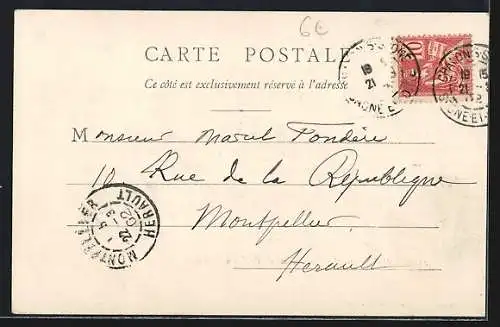 6€
CARTE POSTALE
Ce côté est exclusivement réservé à l'adresse
10
Monsieur Marcel Fondère
10 Rue de la République
Montpellier
Herault
MONTPELLIER HERAULT
22 -3
02